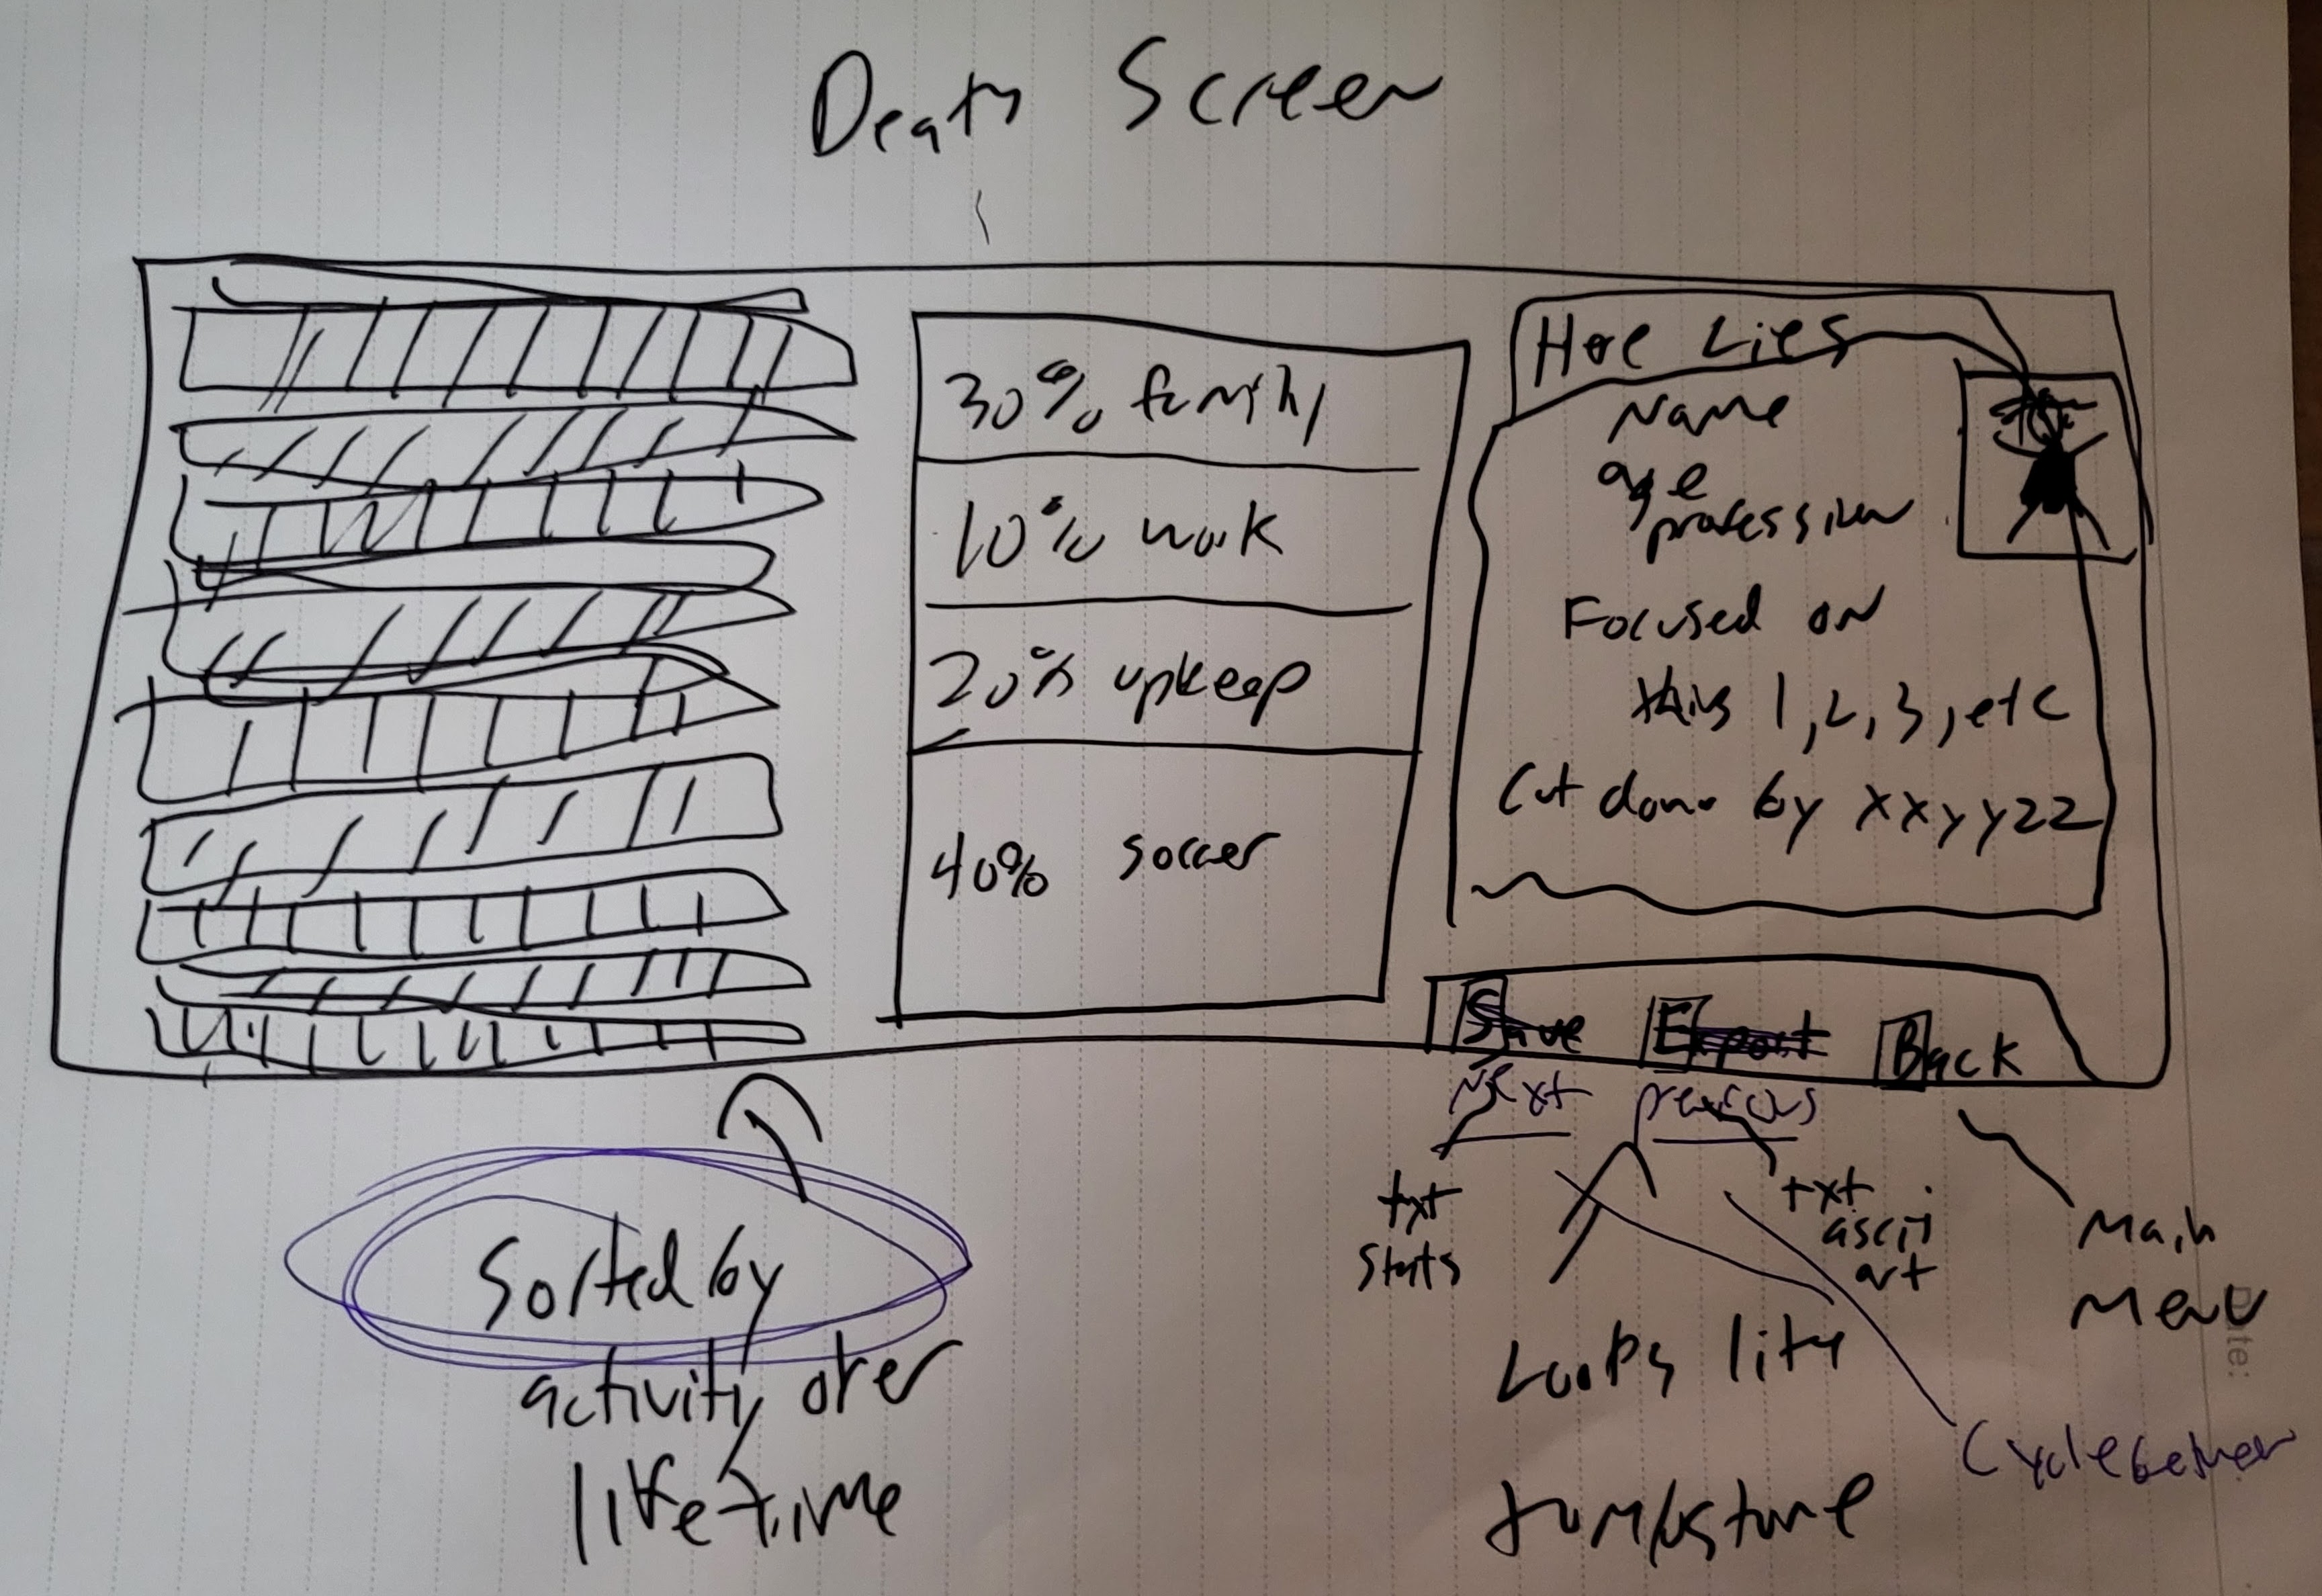 Death Screen
30% family
10% work
20% upkeep
40% soccer
Here Lies
Name
age
profession
Focused on
this 1, 2, 3, etc
Cut down by xxyyzz
Save Export Back
Next previous
txt
stats
txt
ascii
art
Main
Menu
Sorted by
activity over
lifetime
Looks like
tombstone
Cycle between
Date: